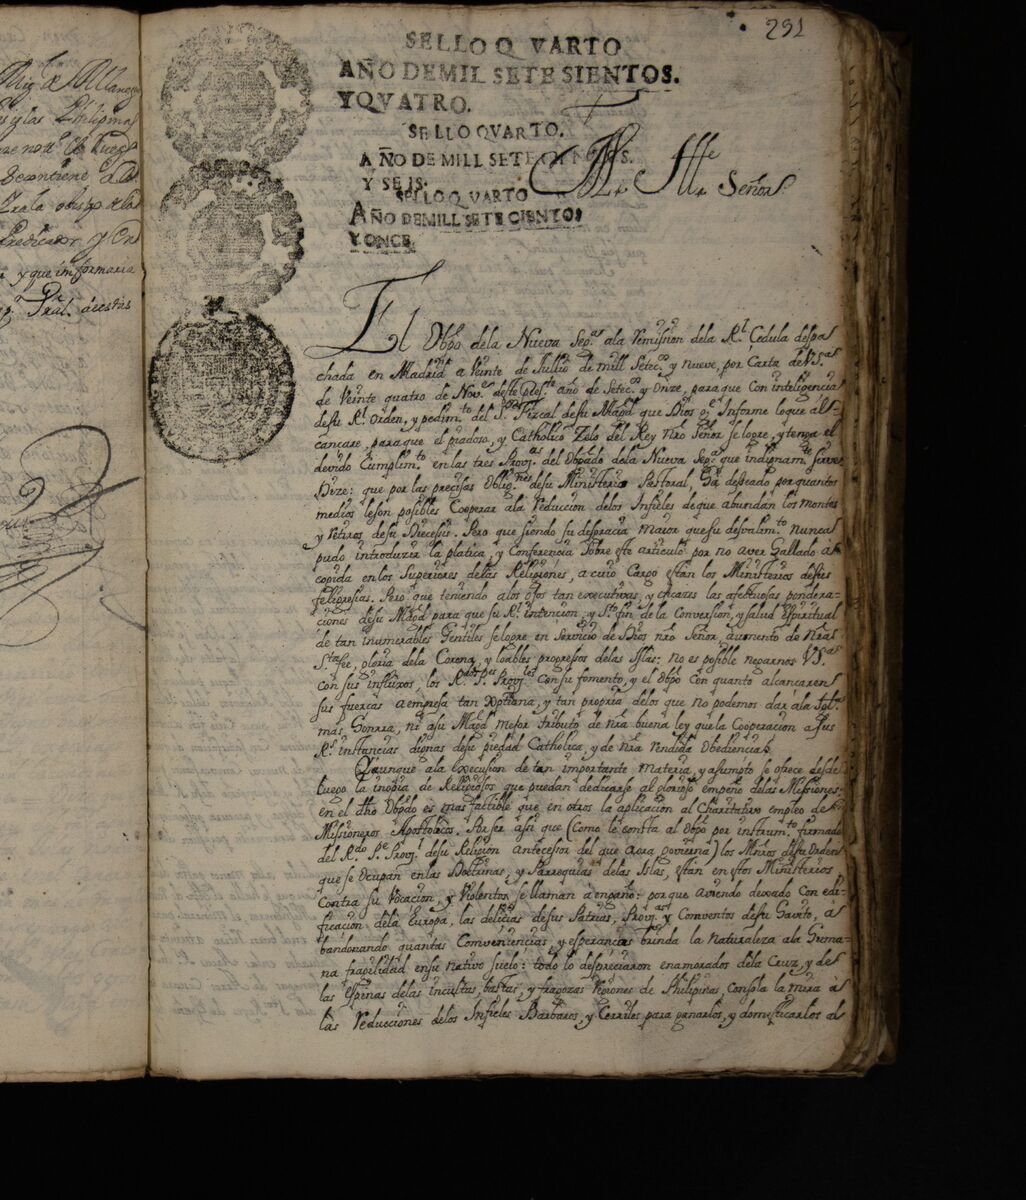 Mig.l de
Philipinas
Predicador y en
y que informaria
291
SELLO QVARTO
AÑO DE MIL SETESIENTOS.
Y QVATRO.
SELLO QVARTO.
AÑO DE MILL SETECIENTOS.
Y SEIS.
SELLO QVARTO
AÑO DE MILL SETE CIENTOS
Y ONCE
M. Ill.e Señor
El Obpo dela Nueva Seg.a ala remission dela R.l Cedula despa
chada en Madrid a Veinte de Jullio de mill Setec.os y nueve, por Carta de VS.as
de Veinte quatro de Nov.e deste press.te año de Setec.os y Onze, para que con inteligencia
desu R.l orden, y pedim.to del S.or Fiscal desu Mag.d que Dios g.e Informe loque al-
cancare, para que el piadoso, y Catholico Zelo del Rey nro Señor se logre, y tenga el
devido Cumplim.to en las tres Prov.as del Obpado dela Nueva Seg.a que indignam.te sirve
Dize: que por las precisas Oblig.nes desu Ministerio Pastoral, ha deseado por quantos
medios leson posibles Cooperar ala reduccion delos Infieles deque abundan los montes
y retiros desu Diecesis. Pero que siendo su desgracia maior quesu desvalim.to nunca
pudo introduzir la platica, y Conferencia sobre este articulo por no aver hallado a-
cogida en los Superiores delas Religiones, a cuio Cargo estan los Ministerios desus
feligresias. Pero que teniendo alos ojos tan executivas, y eficazes las afectuosas pondera-
ciones desu Mag.d para que su R.l intencion, y S.to fin de la Conversion, y salud espiritual
de tan inumerables Gentiles se logre en Servicio de Dios nro Señor, aumento de nra
S.ta fee, gloria dela Corona, y loables progressos delas Islas: no es posible negarnos VS.as
con sus influxos, los R.dos P.es Prov.les con su fomento, y el Obpo con quanto alcancaren
sus fuercas a empresa tan Xptiana, y tan propria delos que no podemos dar ala Igl.a
mas honrra, ni asu Mag.d mejor tributo de nra buena ley que la Cooperacion a sus
R.s instancias dignas desu piedad Catholica, y de nra rendida Obediencia.
Yaunque ala execusion de tan importante materia, y asumpto se ofrece desde
luego la inopia de Religiosos que puedan dedicarse al glorioso empeño delas Missiones:
en el dho Obpdo es mas factible que en otros la aplicacion al Charitativo empleo de
Missioneros Apostolicos. Por ser assi que (como le consta al Obpo por instrum.to firmado
del R.do P.e Prov.l desu Religion antecessor del que aora govierna) los Mnros desu Orden
que se ocupan en las Doctrinas, y Parroquias delas Islas, estan en estos Ministerios
Contra su Vocacion, y Violentos, se llaman a engaño: porque aviendo dexado con edi-
ficacion dela Europa, las delicias desus Patrias, Prov.as y Conventos desu havito, a-
bandonando quantas Conveniencias, y esperancas brinda la naturaleza ala huma-
na fragilidad en su nativo suelo: todo lo despreciaron enamorados dela Cruz, y de
las espinas delas incultas, bastas, y fragozas regiones de Philipinas, con sola la mira a
las reducciones delos Infieles Barbaros, y Cerriles para ganarlos, y domesticarlos al